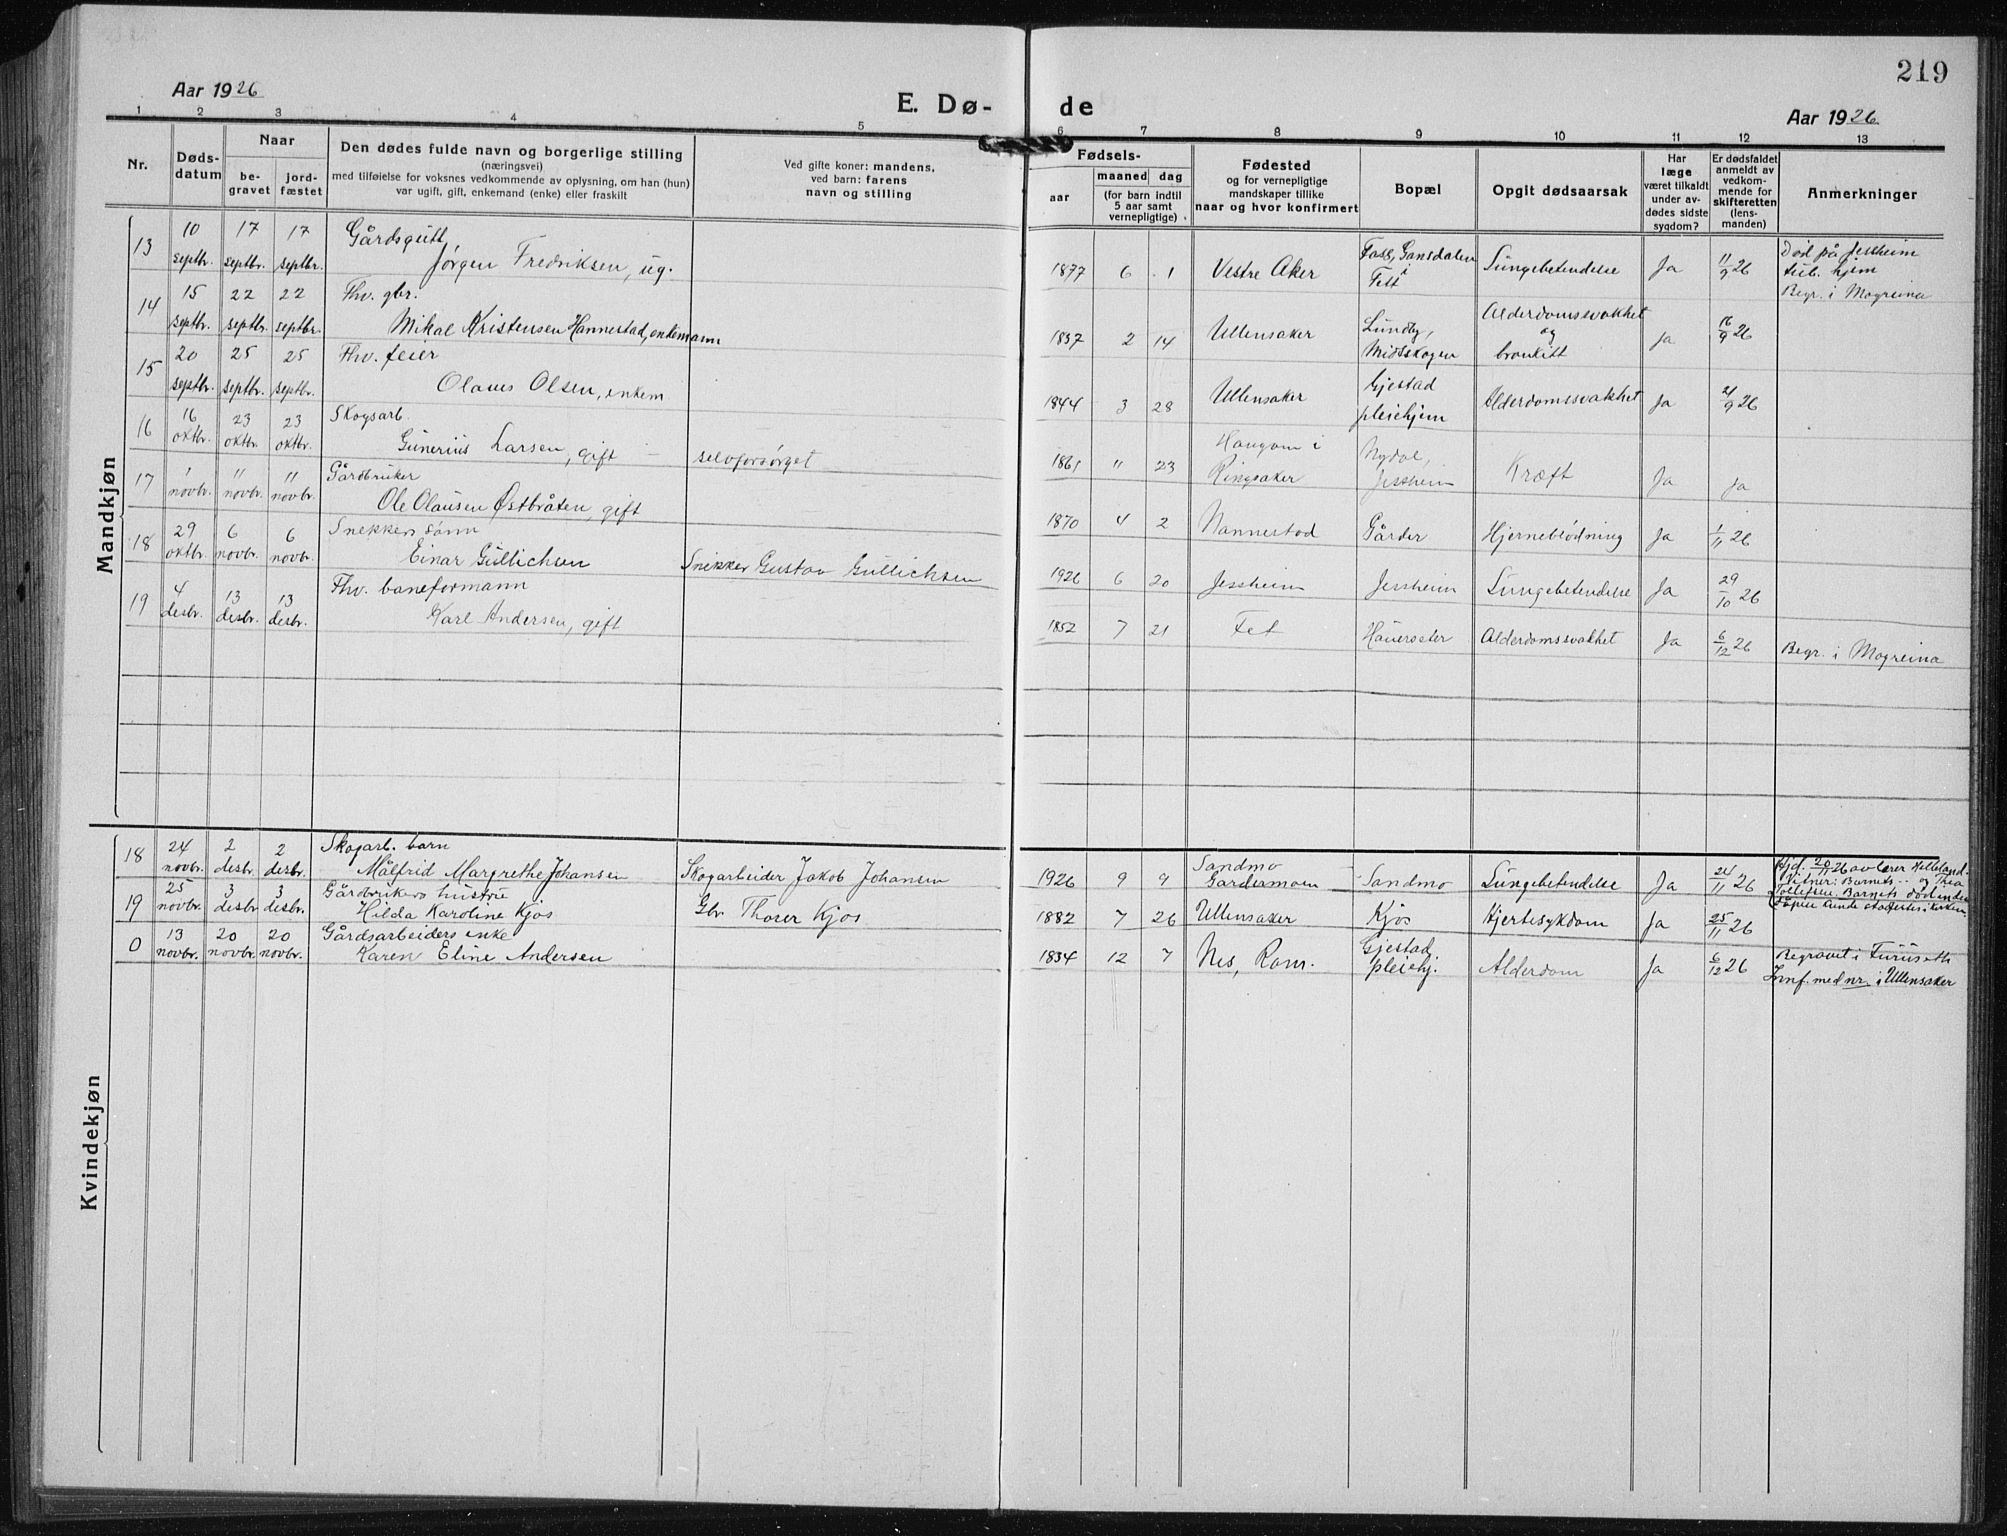 219
Aar 1926
E. Dø- de
Aar 1926
1 2 3 4 5 6 7 8 9 10 11 12 13
Nr.
Døds-
datum
Naar
be-
gravet
jord-
fæstet
Den dødes fulde navn og borgerlige stilling
(næringsvei)
med tilføielse for voksnes vedkommende av oplysning, om han (hun)
var ugift, gift, enkemand (enke) eller fraskilt
Ved gifte koner: mandens,
ved barn: farens
navn og stilling
Fødsels-
aar
maaned dag
(for barn indtil
5 aar samt
vernepligtige)
Fødested
og for vernepligtige
mandskaper tillike
naar og hvor konfirmert
Bopæl
Opgit dødsaarsak
Har
læge
været tilkaldt
under av-
dødes sidste
sygdom?
Er dødsfaldet
anmeldt av
vedkom-
mende for
skifteretten
(lens-
manden)
Anmerkninger
Mandkjøn
13 10 septbr. 17 septbr. 17 septbr. Gårdsgutt
Jørgen Fredriksen, ug. 1877 6 1 Vestre Aker Foss, Gansdalen i Fett Lungebetendelse Ja 11/9 26 Død på Jessheim
tub. hjem
Begr. i Mogreina
14 15 septbr. 22 septbr. 22 septbr. Fhv. gbr.
Mikal Kristensen Hannestad, enkemann 1837 2 14 Ullensaker Lundby, Midtskogen Alderdomssvakhet og bronkitt Ja 16/9 26
15 20 septbr. 25 septbr. 25 septbr. Fhv. feier
Olaus Olsen, enkem 1844 3 28 Ullensaker Gjestad pleiehjem Alderdomssvakhet Ja 21/9 26
16 16 oktbr. 23 oktbr. 23 oktbr. Skogsarb.
Gunerius Larsen, gift – selvforsørget 1861 11 23 Haugom i Ringsaker Nydal, Jessheim Kræft Ja Ja
17 1 novbr. 11 novbr. 11 novbr. Gårdbruker
Ole Olausen Østbråten, gift 1870 4 2 Nannestad Gårder Hjerneblødning Ja 1/11 26
18 29 oktbr. 6 novbr. 6 novbr. Snekkers sønn
Einar Gullichsen Snekker Gustav Gullichsen 1926 6 20 Jessheim Jessheim Lungebetendelse Ja 29/10 26
19 4 desbr. 13 desbr. 13 desbr. Fhv. baneformann
Karl Andersen, gift 1852 7 21 Fet Hauerseter Alderdomssvakhet Ja 6/12 26 Begr. i Mogreina
Kvindekjøn
18 24 novbr. 2 desbr. 2 desbr. Skogarb. barn
Målfrid Margrethe Johansen Skogarbeider Jakob Johansen 1926 9 9 Sandmo Gardermoen Sandmo Lungebetendelse Ja 24/11 26 Hjd. 20/11 26 av lærer Helleland
Vidner: Barnets og Thea
Tollefsen Barnets død
19 25 novbr. 3 desbr. 3 desbr. Gårdbrukers hustru
Hilda Karoline Kjos Gbr. Thorer Kjos 1882 7 26 Ullensaker Kjos Hjertesykdom Ja 25/11 26
0 13 novbr. 20 novbr. 20 novbr. Gårdsarbeiders enke
Karen Eline Andersen 1834 12 7 Nes, Rom. Gjestad pleiehj. Alderdom Ja 6/12 26 Begravet i Furuseth
Innf. med nr. i Ullensaker